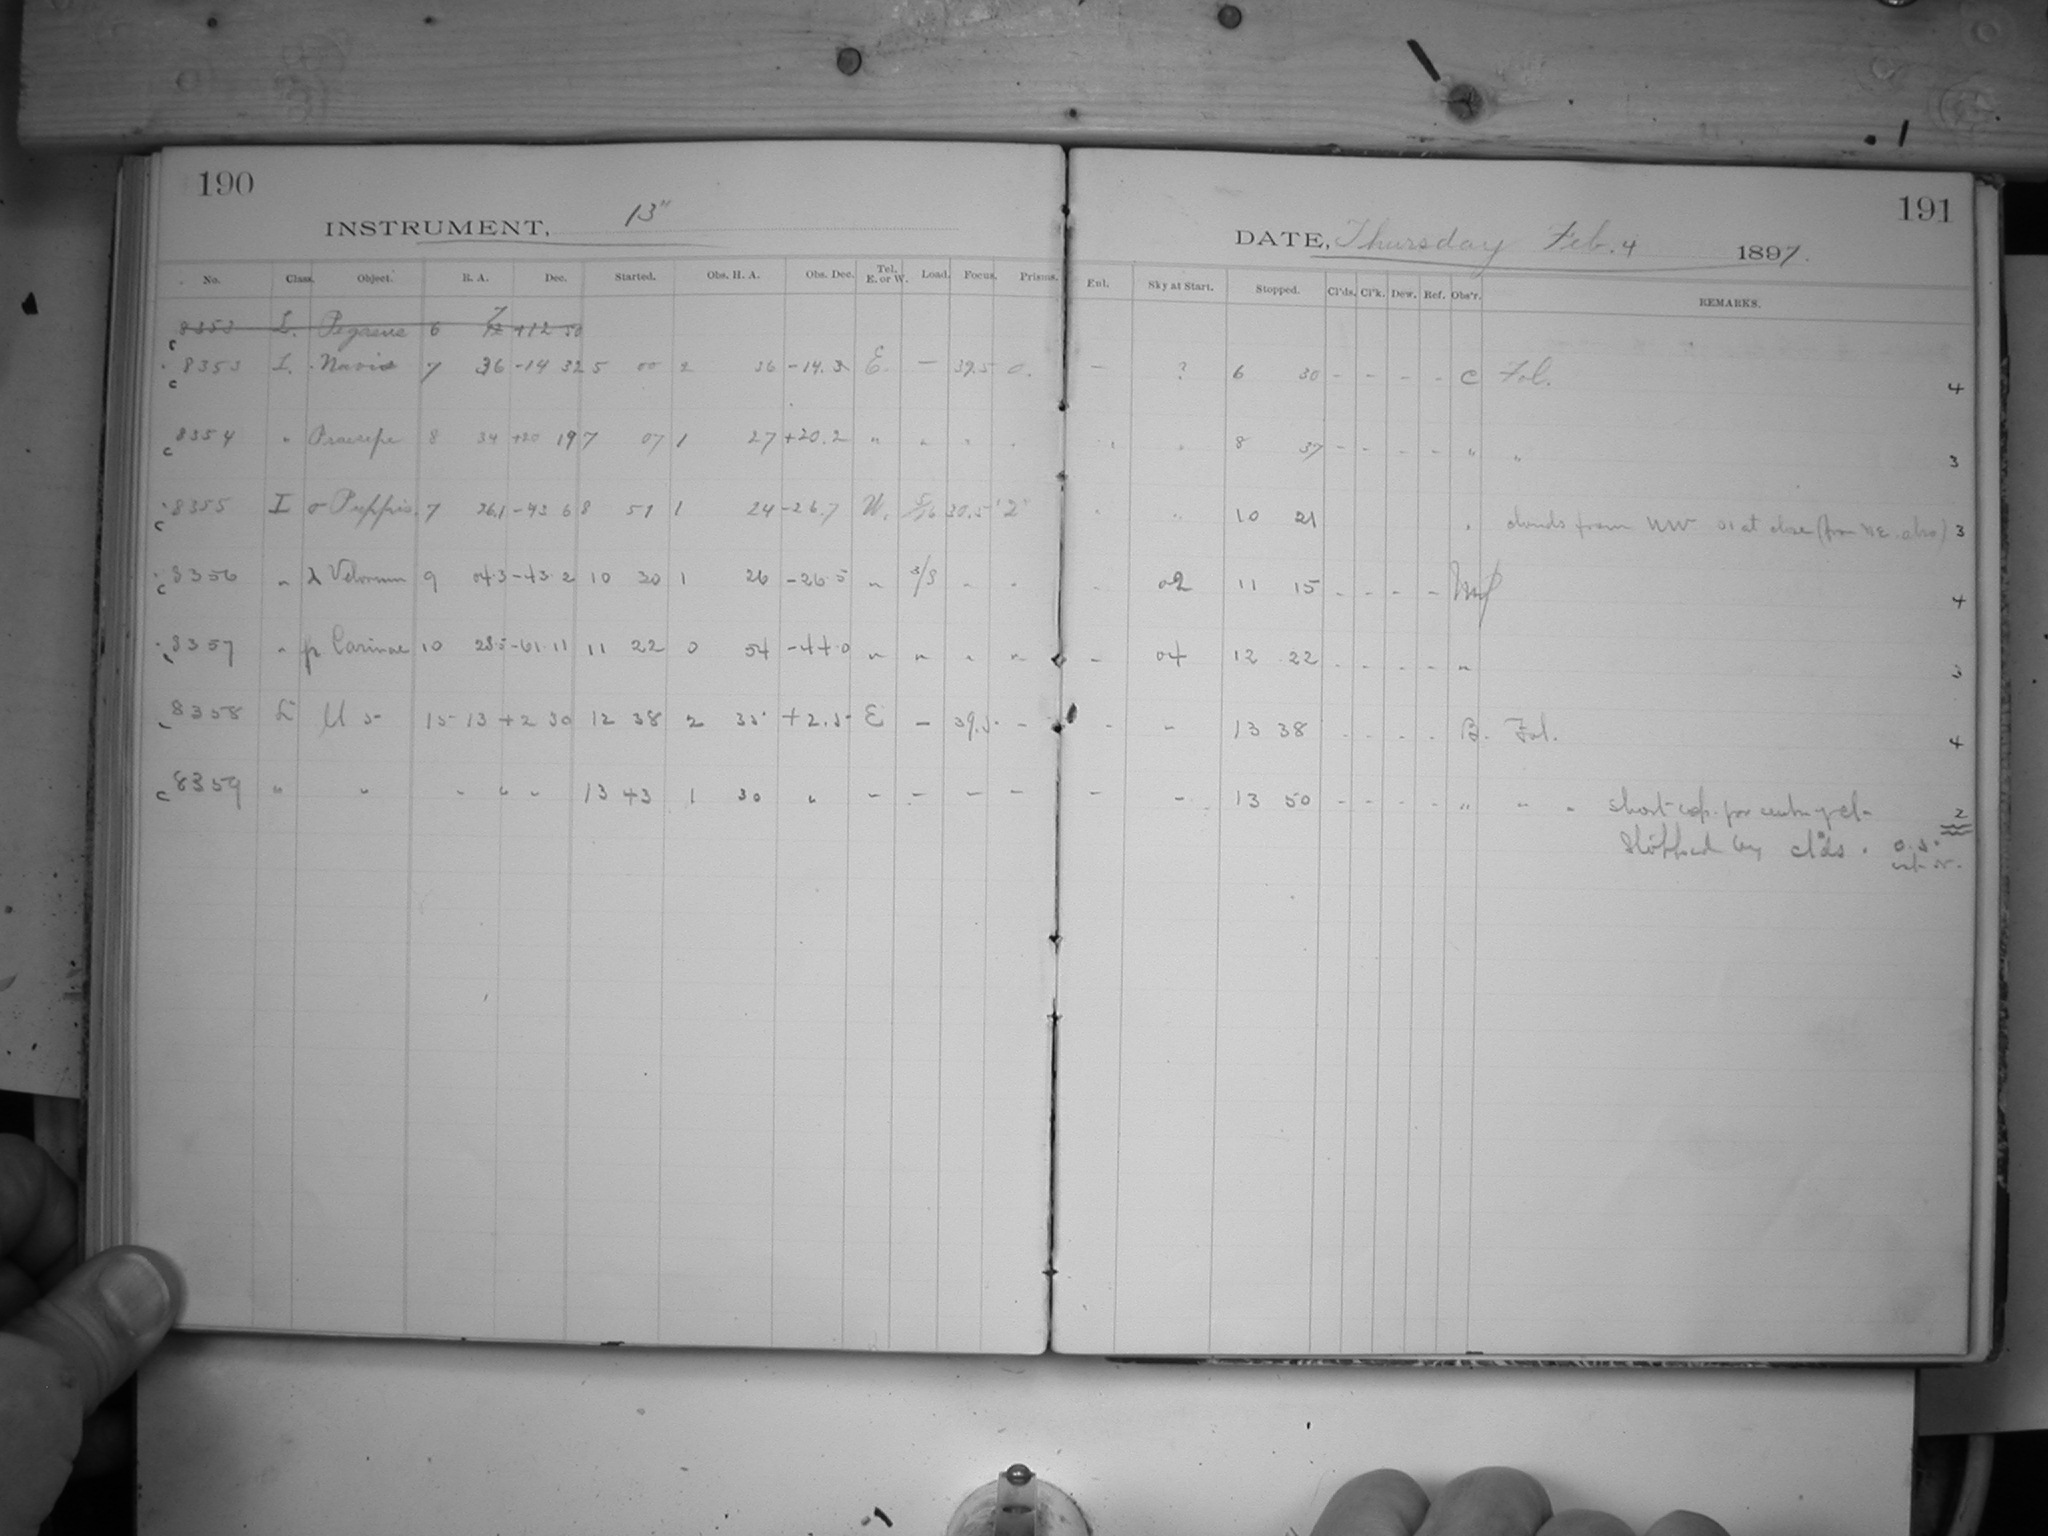 190
INSTRUMENT, 13"
No. Class. Object. R. A. Dec. Started. Obs. H. A. Obs. Dec. Tel. E. or W. Load. Focus. Prisms.
8353 L. 6 +12 50
8353 L. Navis 7 36 -14 32 5 00 2 36 -14.5 E. — 39.5 0.
8354 " Praesepe 8 34 +20 19 7 07 1 27 +20.2 " " " "
8355 I σ Puppis 7 26.1 -43 6 8 51 1 24 -26.7 W. 30.5 "2"
8356 " λ Velorum 9 04.3 -43.2 10 30 1 26 -26.5 " 3/8 " "
8357 " p Carinae 10 28.5 -61.11 11 22 0 54 -44.0 " " " "
8358 L M 5 15 13 +2 30 12 38 2 35 +2.5 E — 39.5 —
8359 " " " " " 13 43 1 30 " — — — —
191
DATE, Thursday Feb. 4 1897.
Enl. Sky at Start. Stopped. Cl'ds. Cl'k. Dew. Ref. Obs'r. REMARKS.
— ? 6 30 - - - - C Fol. 4
" " 8 37 - - - - " " 3
" " 10 21 " clouds from NW at close (from NE. also) 3
- 02 11 15 - - - - 4
- 04 12 22 - - - - "
- - 13 38 - - - - B. Fol. 4
- - 13 50 - - - - " " " short exp. for 2
Stopped by cl'ds.